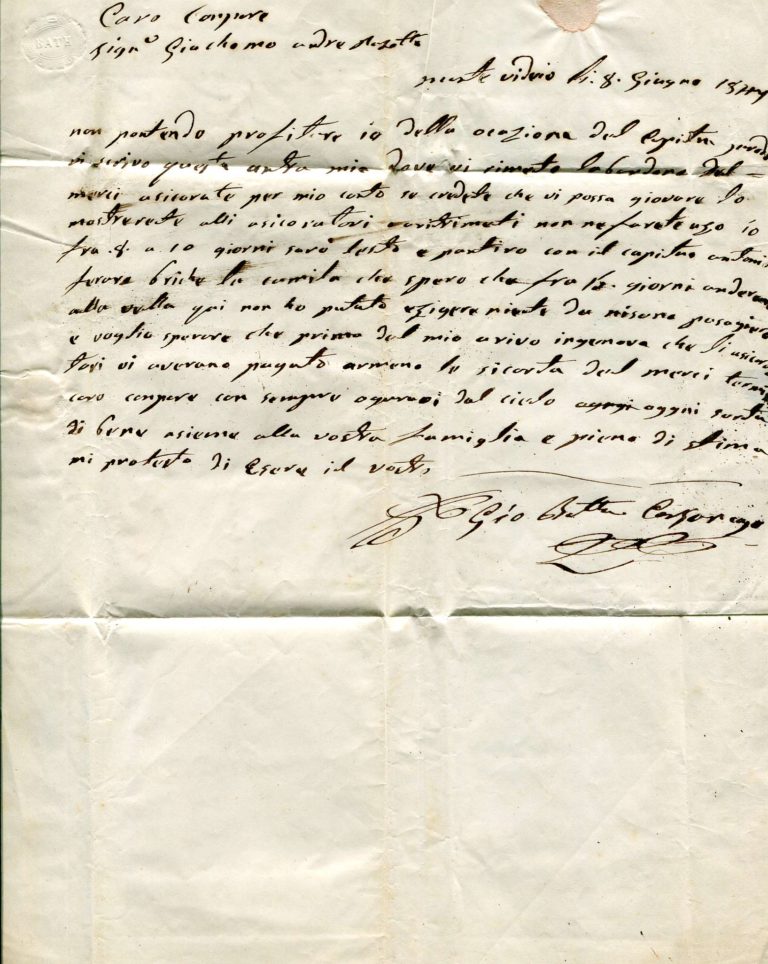 BATH
Caro Conpare
Sign.º Giachomo andre
monte video li. 8. Giugno
non pontendo profitare io della ocaziona del Capitn
vi scrivo questa antra mia dove vi rimeto labandono del
merci asicorate per mio conto se credete che vi possa giovare lo
mostrerete alli asicoratori contrimeti non ne farete uzo io
fra .8. a .10 giorni sarò lesto e pontiro con il capitno antonio
ferara briche la camila che spero che fra giorni anderemo
alla vella qui non ho pututo ezigere niente da nisuno pasagiero
e voglio sperare che primo dal mio arivo ingenova che li asicora
tori vi averano pagato armeno le sicorta del merci termino
caro conpare con sempre oguravi dal cielo oggni sorta
di bene asieme alla vostra famiglia e pieno di stima
mi protesto di Esere il vostro
Gio Batta